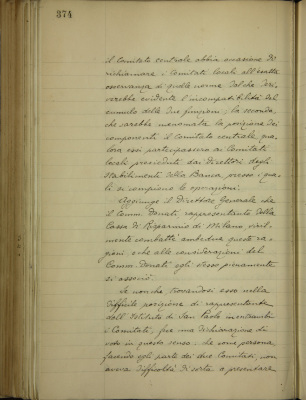 374
il Comitato centrale abbia occasione di
richiamare i Comitati locali all'esatta
osservanza di quelle norme. Dal che deri-
verebbe evidente l'incompatibilità del
cumulo delle due funzioni; la seconda
che sarebbe menomata la posizione dei
componenti il Comitato centrale qua-
lora essi partecipassero ai Comitati
locali presieduti dai Direttori degli
Stabilimenti della Banca presso i qua-
li si compiono le operazioni.
Aggiunge il Direttore Generale che
il Comm. Donati, rappresentante della
Cassa di Risparmio di Milano
mente combatté ambedue queste ra-
gioni e che alle considerazioni del
Comm. Donati egli stesso pienamente
si associò.
Se nonchè trovandosi esso nella
difficile posizione di rappresentante
dell'Istituto di San Paolo in entrambi
i Comitati, fece una dichiarazione di
voto in questo senso: che una persona
facendo egli parte dei due Comitati, non
aveva difficoltà di a presentare